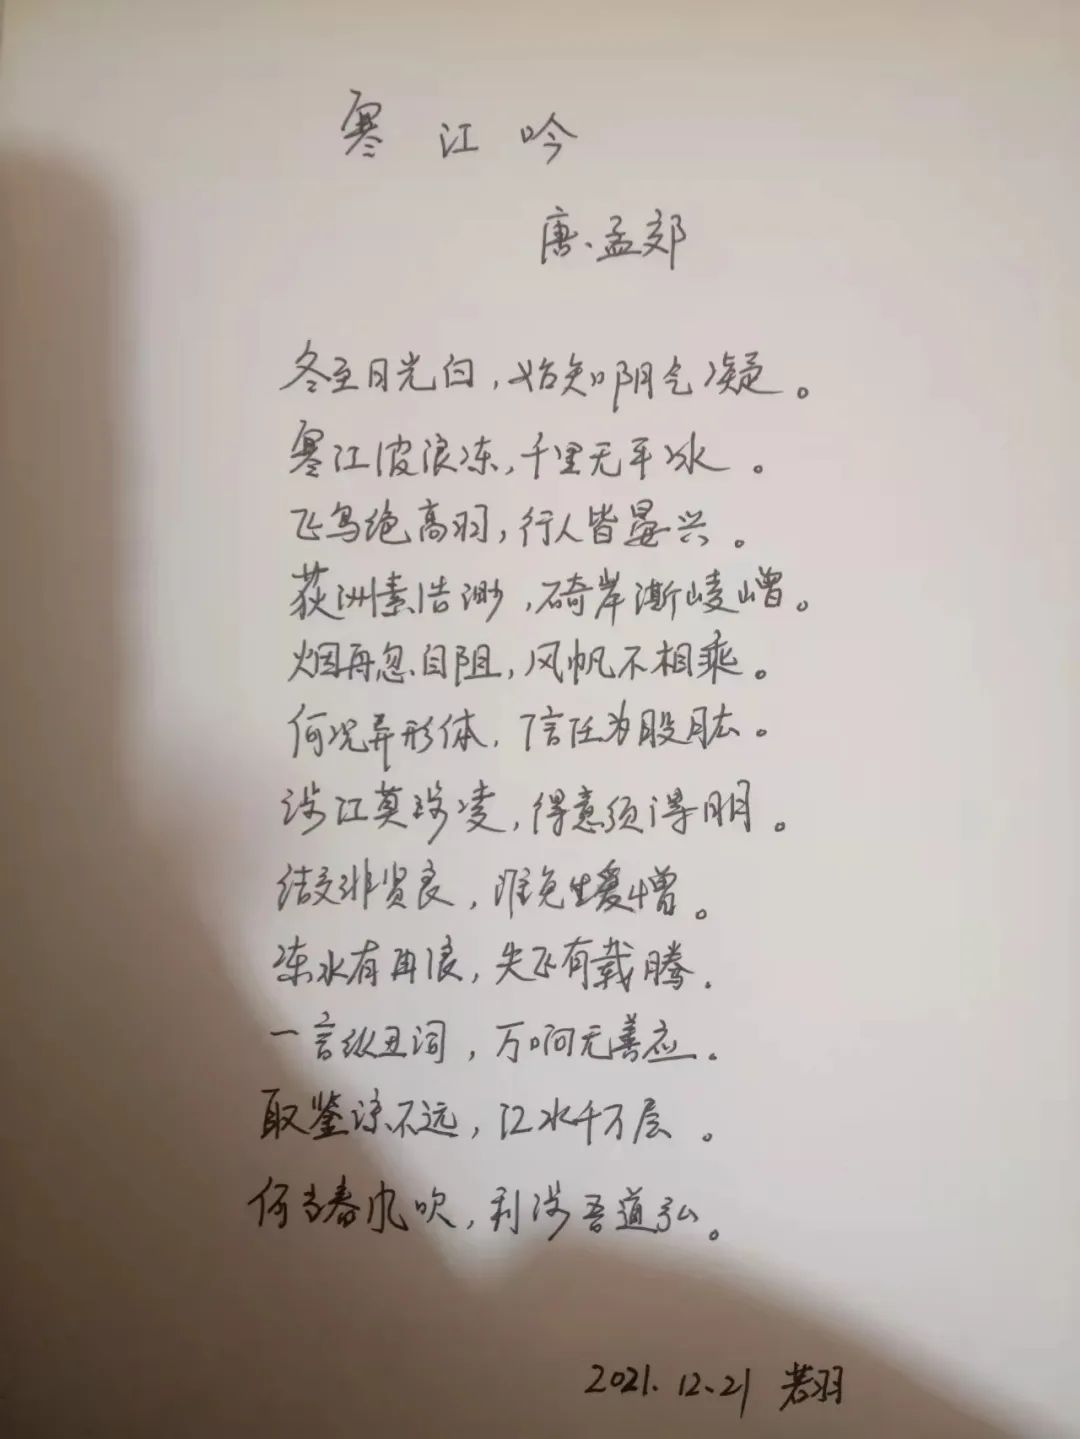 寒江吟
唐、孟郊
冬至日光白，始知阴气凝。
寒江波浪冻，千里无平冰。
飞鸟绝高羽，行人皆晏兴。
荻洲素浩渺，碕岸澌崚嶒。
烟再忽自阻，风帆不相乘。
何况异形体，信任为股肱。
涉江莫涉凌，得意须得朋。
结交非贤良，谁免生爱憎。
冻水有再浪，失飞有载腾。
一言纵丑词，万响无善应。
取鉴谅不远，江水千万层。
何当春风吹，利涉吾道弘。
2021.12.21 若羽